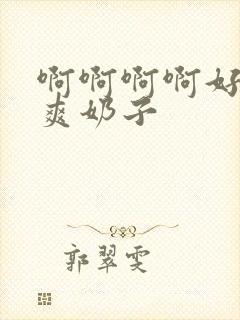 啊啊啊啊好
爽奶子
郭翠雯